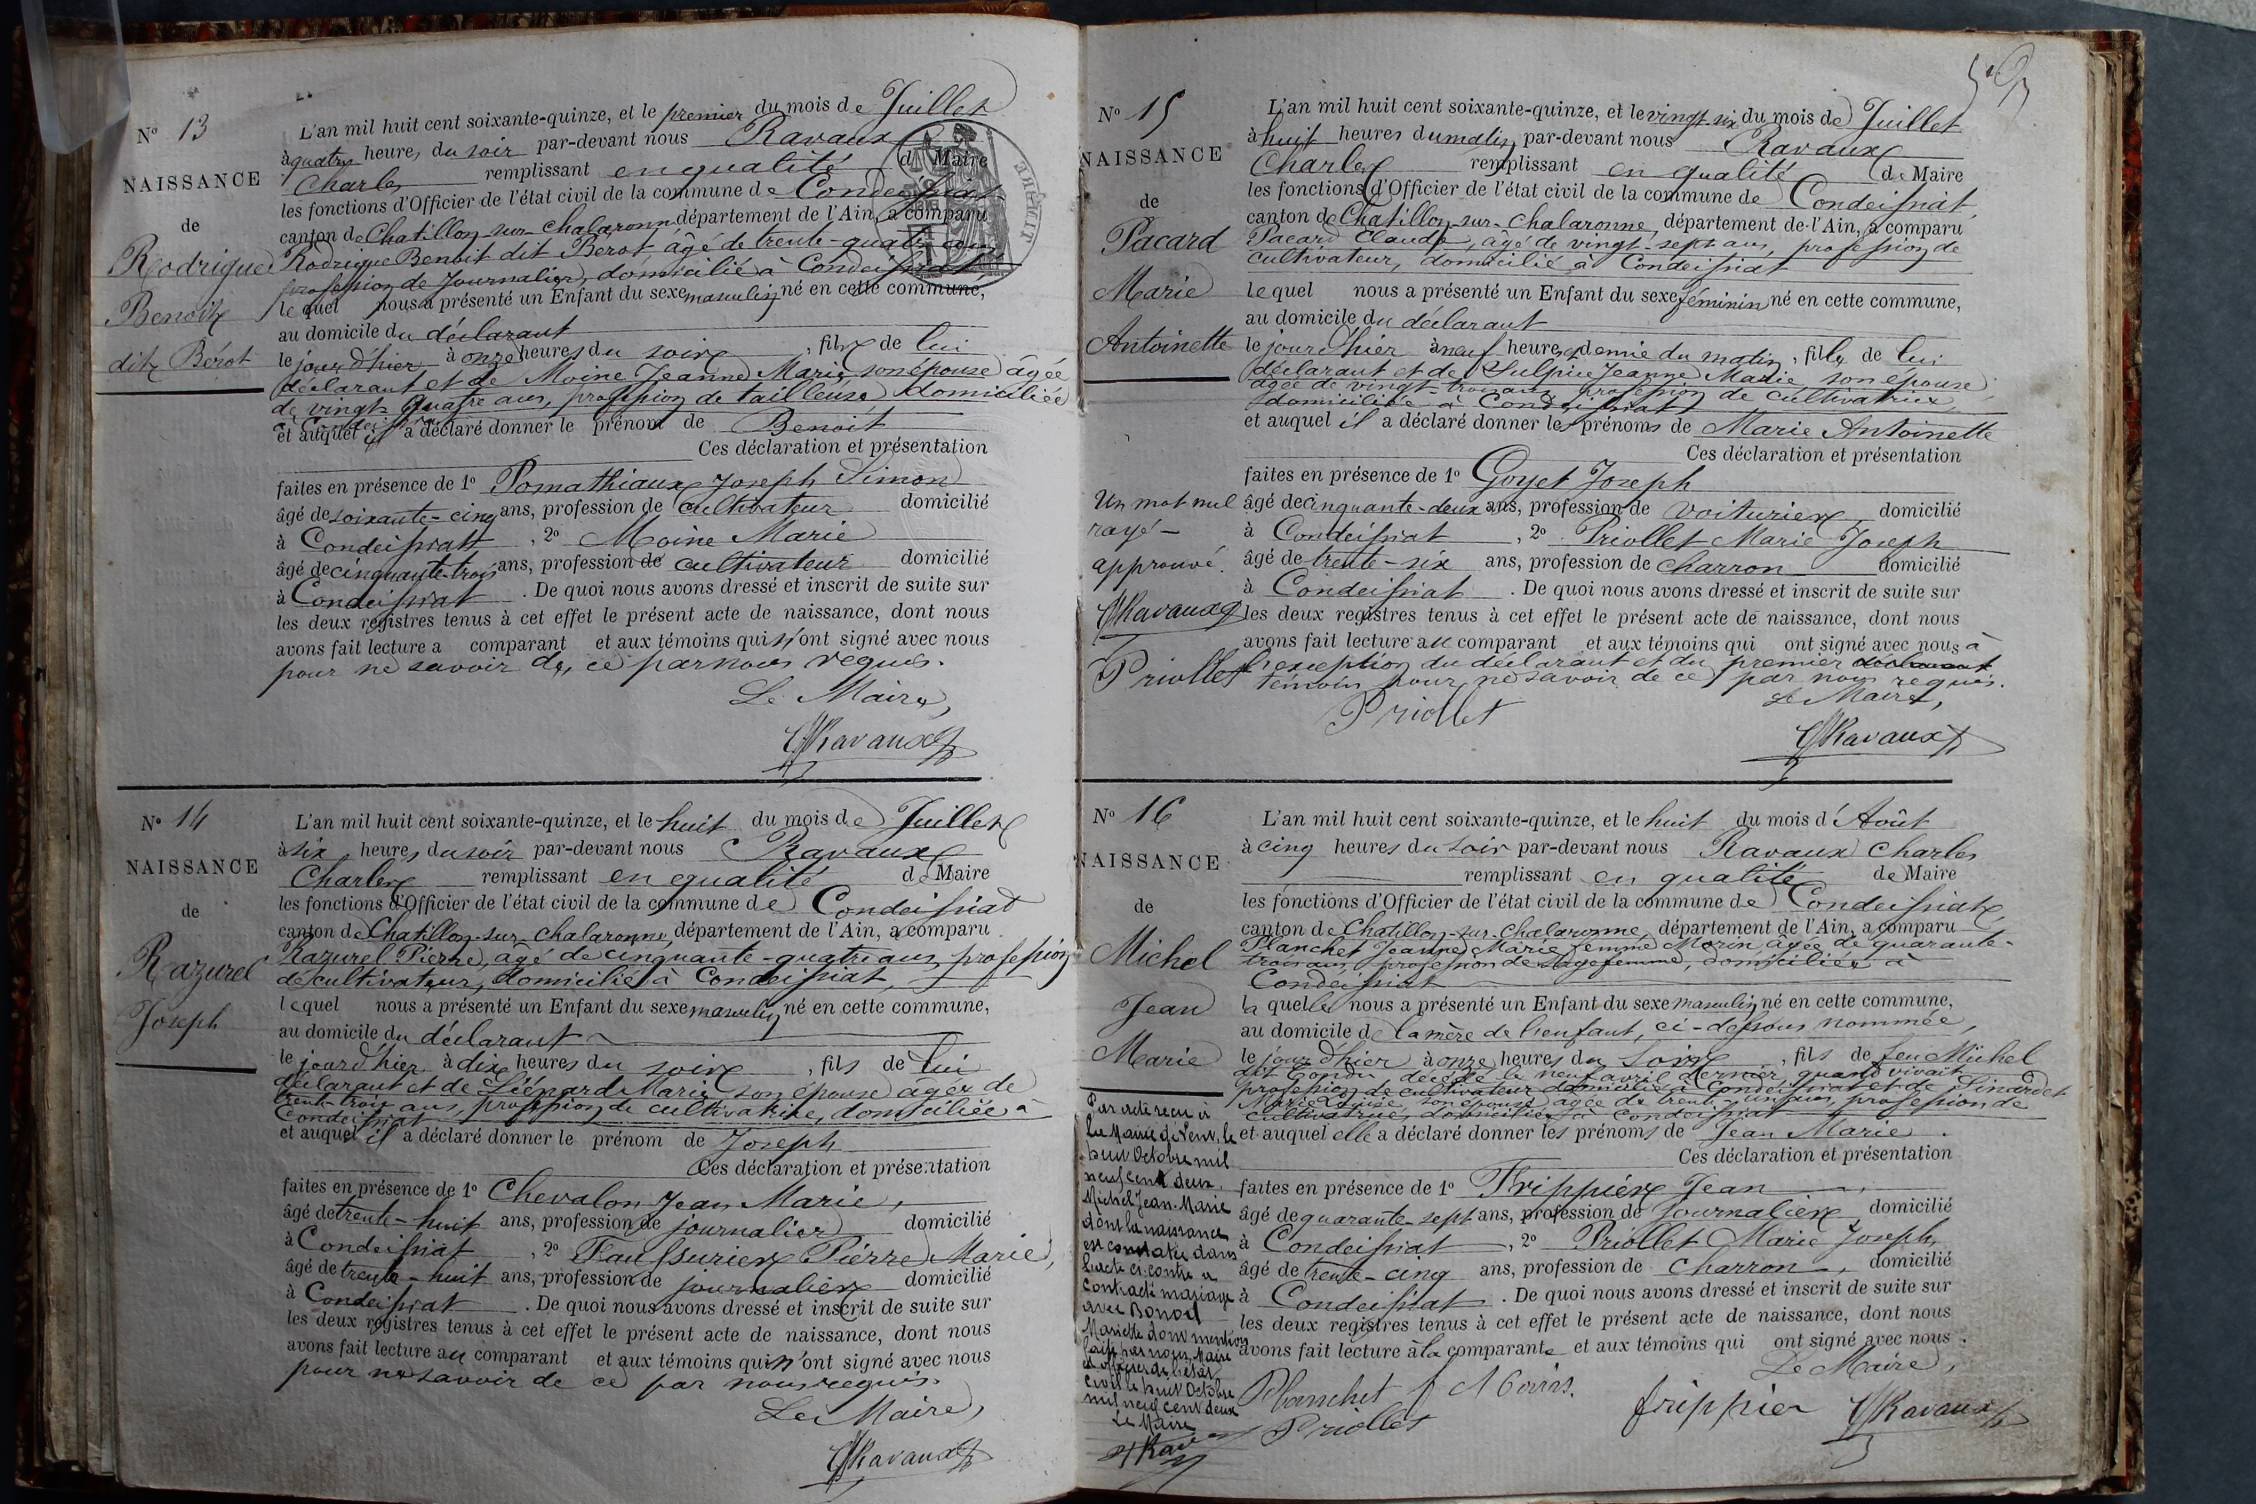 N° 13
NAISSANCE
de
Rodrigue
Benoit
dit Berot
L'an mil huit cent soixante-quinze, et le premier du mois de Juillet
à quatre heures du soir par-devant nous Ravaux
Charles remplissant en qualité de Maire
les fonctions d'Officier de l'état civil de la commune de Condeissiat
canton de Chatillon-sur-Chalaronne département de l'Ain, a comparu
Rodrigue Benoit dit Berot, âgé de trente-quatre ans
profession de Journalier, domicilié à Condeissiat
lequel nous a présenté un Enfant du sexe masculin né en cette commune,
au domicile du déclarant
le jour d'hier à onze heures du soir, fils de lui
déclarant et de Moine Jeanne Marie, son épouse âgée
de vingt quatre ans, profession de tailleuse domiciliée
à Condeissiat
et auquel il a déclaré donner le prénom de Benoit
Ces déclaration et présentation
faites en présence de 1° Pomathiaux Joseph Simon
âgé de soixante-cinq ans, profession de cultivateur domicilié
à Condeissiat, 2° Moine Marie
âgé de cinquante-trois ans, profession de cultivateur domicilié
à Condeissiat. De quoi nous avons dressé et inscrit de suite sur
les deux registres tenus à cet effet le présent acte de naissance, dont nous
avons fait lecture a comparant et aux témoins qui n'ont signé avec nous
pour ne savoir de ce par nous requis.
Le Maire,
Ravaux
N° 14
NAISSANCE
de
Razurel
Joseph
L'an mil huit cent soixante-quinze, et le huit du mois de Juillet
à six heures du soir par-devant nous Ravaux
Charles remplissant en qualité de Maire
les fonctions d'Officier de l'état civil de la commune de Condeissiat
canton de Chatillon-sur-Chalaronne, département de l'Ain, a comparu
Razurel Pierre, âgé de cinquante-quatre ans, profession
de cultivateur, domicilié à Condeissiat,
lequel nous a présenté un Enfant du sexe masculin né en cette commune,
au domicile du déclarant
le jour d'hier à dix heures du soir, fils de lui
déclarant et de Liénard Marie son épouse âgée de
trente-trois ans, profession de cultivatrice, domiciliée à
Condeissiat
et auquel il a déclaré donner le prénom de Joseph
Ces déclaration et présentation
faites en présence de 1° Chevalon Jean Marie,
âgé de trente-huit ans, profession de journalier domicilié
à Condeissiat, 2° Faussurier Pierre Marie,
âgé de trente-huit ans, profession de journalier domicilié
à Condeissiat. De quoi nous avons dressé et inscrit de suite sur
les deux registres tenus à cet effet le présent acte de naissance, dont nous
avons fait lecture au comparant et aux témoins qui n'ont signé avec nous
pour ne savoir de ce par nous requis.
Le Maire,
Ravaux
N° 15
NAISSANCE
de
Pacard
Marie
Antoinette
L'an mil huit cent soixante-quinze, et le vingt-six du mois de Juillet
à huit heures du matin par-devant nous Ravaux
Charles remplissant en qualité de Maire
les fonctions d'Officier de l'état civil de la commune de Condeissiat
canton de Chatillon-sur-Chalaronne, département de l'Ain, a comparu
Pacard Claude, âgé de vingt-sept ans, profession de
cultivateur, domicilié à Condeissiat
lequel nous a présenté un Enfant du sexe féminin né en cette commune,
au domicile du déclarant
le jour d'hier à neuf heures et demie du matin, fille de lui
déclarant et de Sulpice Jeanne Marie, son épouse
âgée de vingt-trois ans, profession de cultivatrice,
domiciliée à Condeissiat
et auquel il a déclaré donner les prénoms de Marie Antoinette
Ces déclaration et présentation
faites en présence de 1° Goyet Joseph
âgé de cinquante-deux ans, profession de voiturier domicilié
à Condeissiat, 2° Priollet Marie Joseph
âgé de trente-six ans, profession de charron domicilié
à Condeissiat. De quoi nous avons dressé et inscrit de suite sur
les deux registres tenus à cet effet le présent acte de naissance, dont nous
avons fait lecture au comparant et aux témoins qui ont signé avec nous à
l'exception du déclarant et du premier déclarant
témoin pour ne savoir de ce par nous requis.
Le Maire,
Priollet
Ravaux
Un mot nul
rayé
approuvé.
Ravaux
Priollet
N° 16
NAISSANCE
de
Michel
Jean
Marie
L'an mil huit cent soixante-quinze, et le huit du mois d'Août
à cinq heures du soir par-devant nous Ravaux Charles
remplissant en qualité de Maire
les fonctions d'Officier de l'état civil de la commune de Condeissiat
canton de Chatillon-sur-Chalaronne, département de l'Ain, a comparu
Planchet Jeanne Marie femme Morin âgée de quarante-
trois ans, profession de Sage femme, domiciliée à
Condeissiat
la quelle nous a présenté un Enfant du sexe masculin né en cette commune,
au domicile de la mère de l'enfant, ci-dessous nommée,
le jour d'hier à onze heures du soir, fils de feu Michel
décédé le neuf avril dernier, quand vivait
profession de cultivateur domicilié à Condeissiat et de Pinardet
Marie Louise, son épouse âgée de trente-un ans, profession de
cultivatrice, domiciliée à Condeissiat
et auquel elle a déclaré donner les prénoms de Jean Marie.
Ces déclaration et présentation
faites en présence de 1° Frippier Jean,
âgé de quarante-sept ans, profession de Journalier domicilié
à Condeissiat, 2° Priollet Marie Joseph,
âgé de trente-cinq ans, profession de charron, domicilié
à Condeissiat. De quoi nous avons dressé et inscrit de suite sur
les deux registres tenus à cet effet le présent acte de naissance, dont nous
avons fait lecture à la comparante et aux témoins qui ont signé avec nous.
Le Maire,
Planchet f Morin.
frippier
Ravaux
Priollet
Par acte reçu à
la Mairie de le
huit Octobre mil
neuf cent deux,
Michel Jean-Marie
dont la naissance
est constatée dans
l'acte ci-contre a
contracté mariage
avec
Mariette dont mention
faite par nous, Maire
et officier de l'état
civil le huit Octobre
mil neuf cent deux
Le Maire